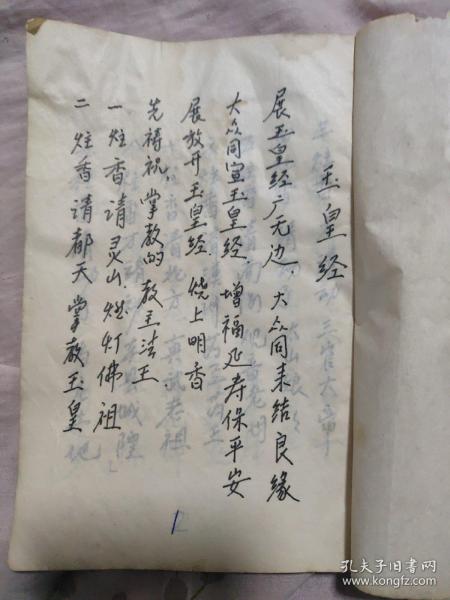 玉皇经
展玉皇经广无边 大众同来结良缘
大众同宣玉皇经 增福延寿保平安
展放开玉皇经 烧上明香
先祷祝 掌教的 教主法王
一炷香请灵山 燃灯佛祖
二炷香请都天 掌教玉皇
1
孔夫子旧书网
www.kongfz.com